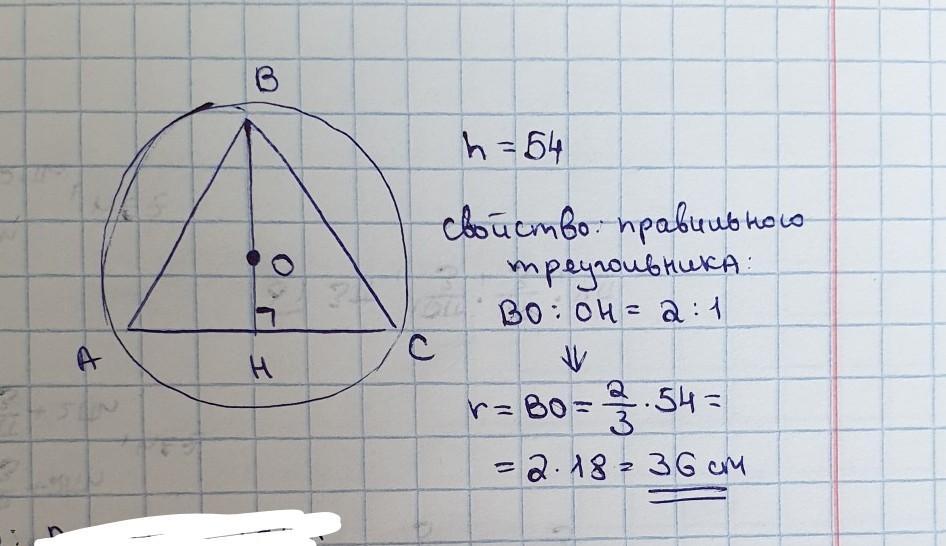 B
h = 54
свойство: правильного
треугольника:
O
BO : OH = 2 : 1
A
H
C
⇓
r = BO = 2/3 · 54 =
= 2 · 18 = 36 см